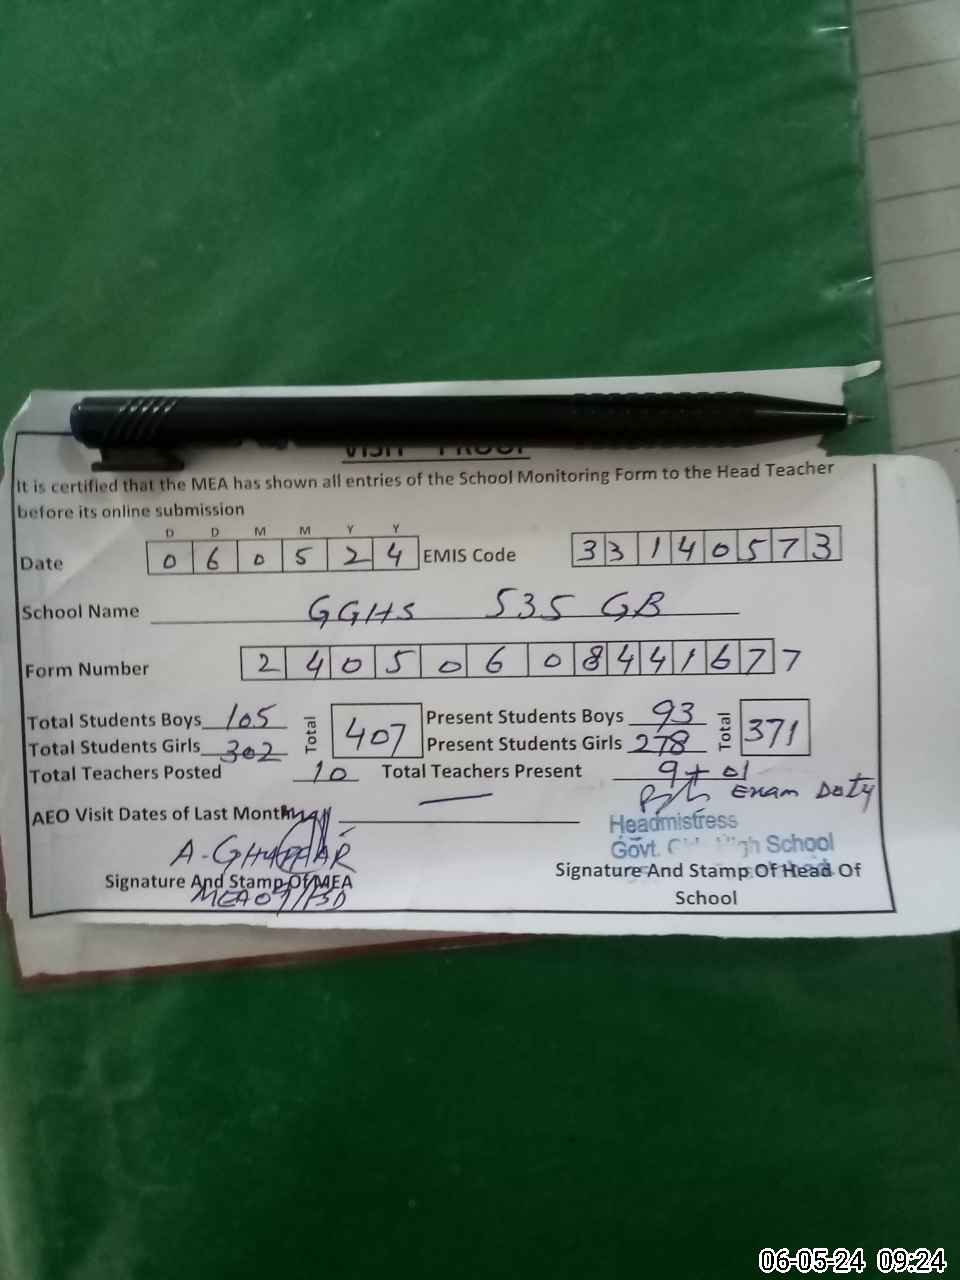 VISIT PROOF
It is certified that the MEA has shown all entries of the School Monitoring Form to the Head Teacher
before its online submission
D D M M Y Y
Date 0 6 0 5 2 4 EMIS Code 3 3 1 4 0 5 7 3
School Name GGHS 535 GB
Form Number 2 4 0 5 0 6 0 8 4 4 1 6 7 7
Total Students Boys 105 Total 407 Present Students Boys 93 Total 371
Total Students Girls 302 Present Students Girls 278
Total Teachers Posted 10 Total Teachers Present 9+01
Exam Duty
AEO Visit Dates of Last Month —
Headmistress
Govt. High School
A-GHAFFAR
Signature And Stamp Of MEA
MEA 07/FSD
Signature And Stamp Of Head Of
School
06-05-24 09:24